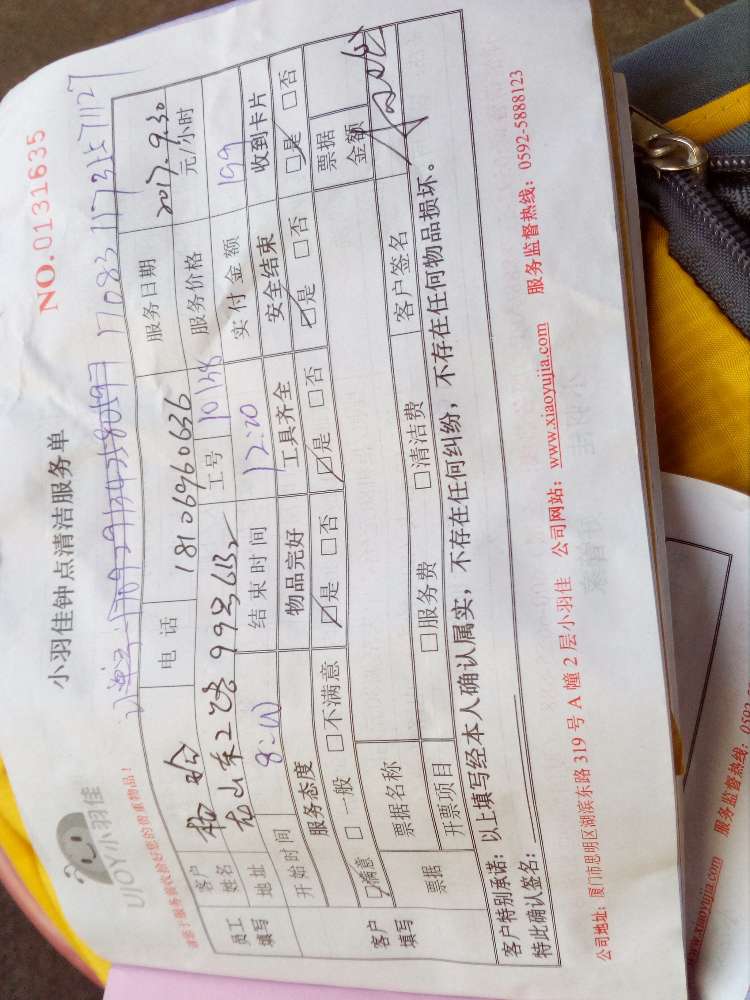 UJOY小羽佳
小羽佳钟点清洁服务单
NO.0131635
请在于服务前收拾好您的贵重物品！
员工填写
客户姓名
电话 18106960636
服务日期 2017.9.30
地址
工号 10138
服务价格 元/小时
开始时间 8:00
结束时间 12:00
实付金额 199
客户填写
服务态度
物品完好
工具齐全
安全结束
收到卡片
☑满意 □一般 □不满意
☑是 □否
☑是 □否
☑是 □否
☑是 □否
票据
票据名称
票据金额
开票项目
□服务费
□清洁费
客户签名
客户特别承诺：以上填写经本人确认属实，不存在任何纠纷，不存在任何物品损坏。
特此确认签名：
公司地址：厦门市思明区湖滨东路 319 号 A 幢 2 层小羽佳 公司网站：www.xiaoyujia.com 服务监督热线：0592-5888123
www.xiaoyujia.com 服务监督热线：0592